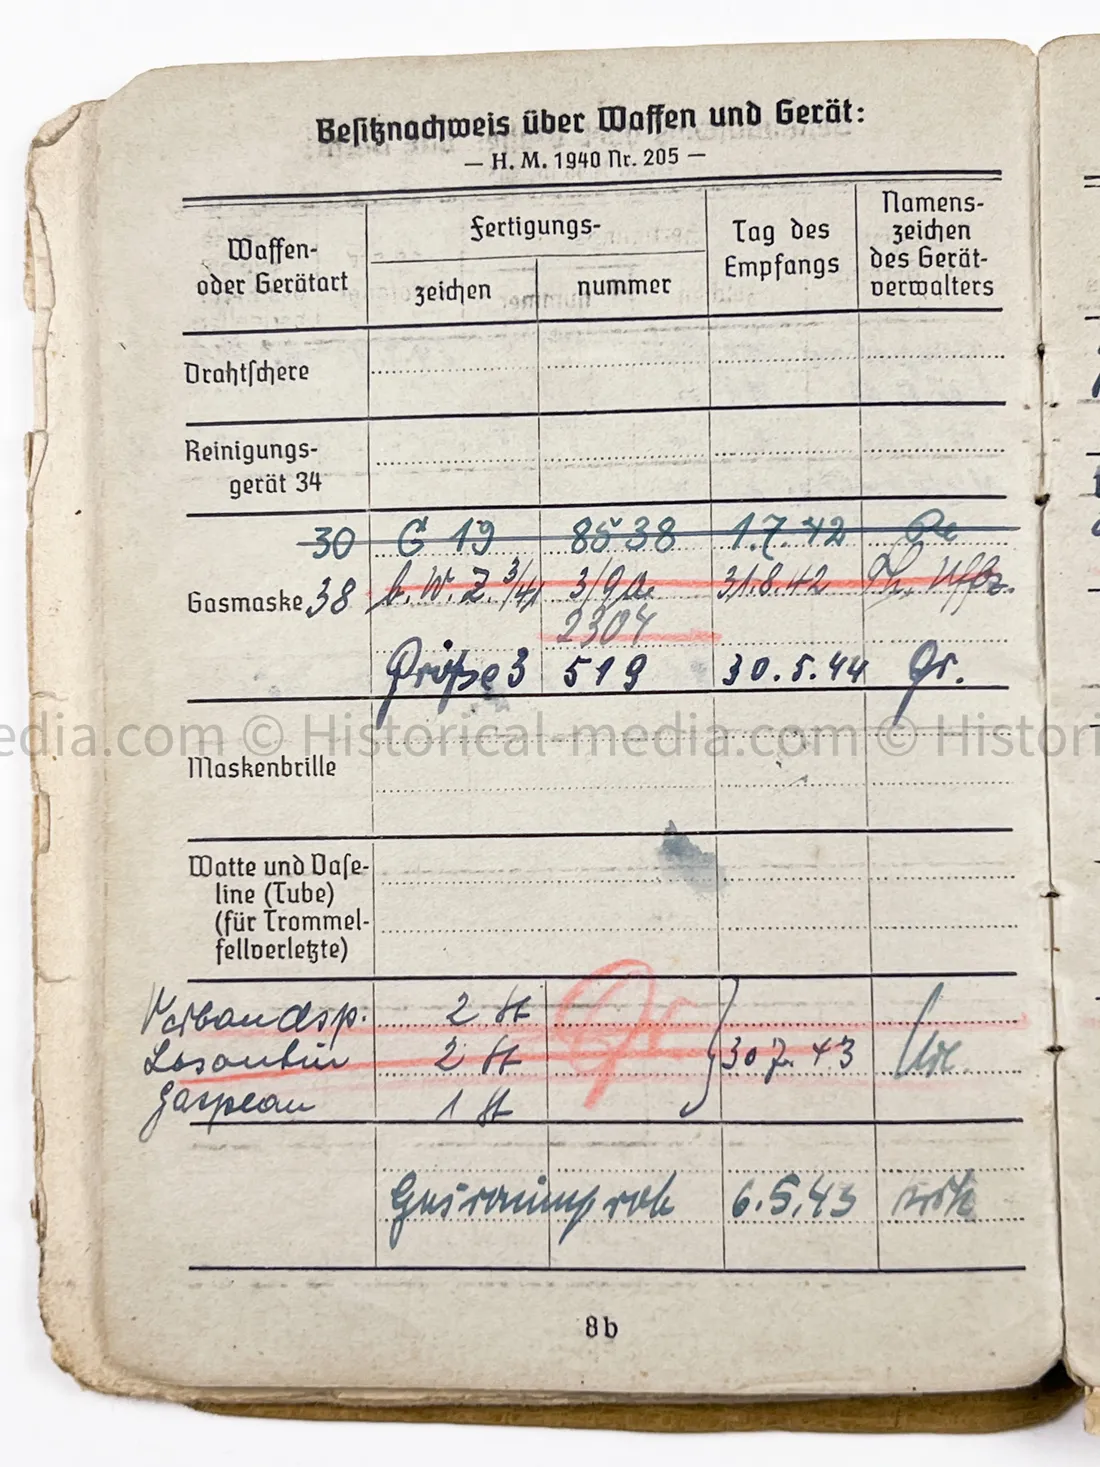 Besitznachweis über Waffen und Gerät:
— H. M. 1940 Nr. 205 —
Waffen- oder Gerätart
Fertigungs-
zeichen
nummer
Tag des Empfangs
Namens-
zeichen
des Gerät-
verwalters
Drahtschere
Reinigungs-
gerät 34
30 G 19 8538 1.7.42
Gasmaske 38 b. W. Z. 3/41 3/9a 31.8.42 Uffz.
2304
Größe 3 519 30.5.44 Gr.
Maskenbrille
Watte und Vase-
line (Tube)
(für Trommel-
fellverletzte)
Verbandsp. 2 St
Losantin 2 St 30.7.43
Gasplan 1 St
Gasraumprob 6.5.43
8b
edia.com © Historical-media.com © Histori